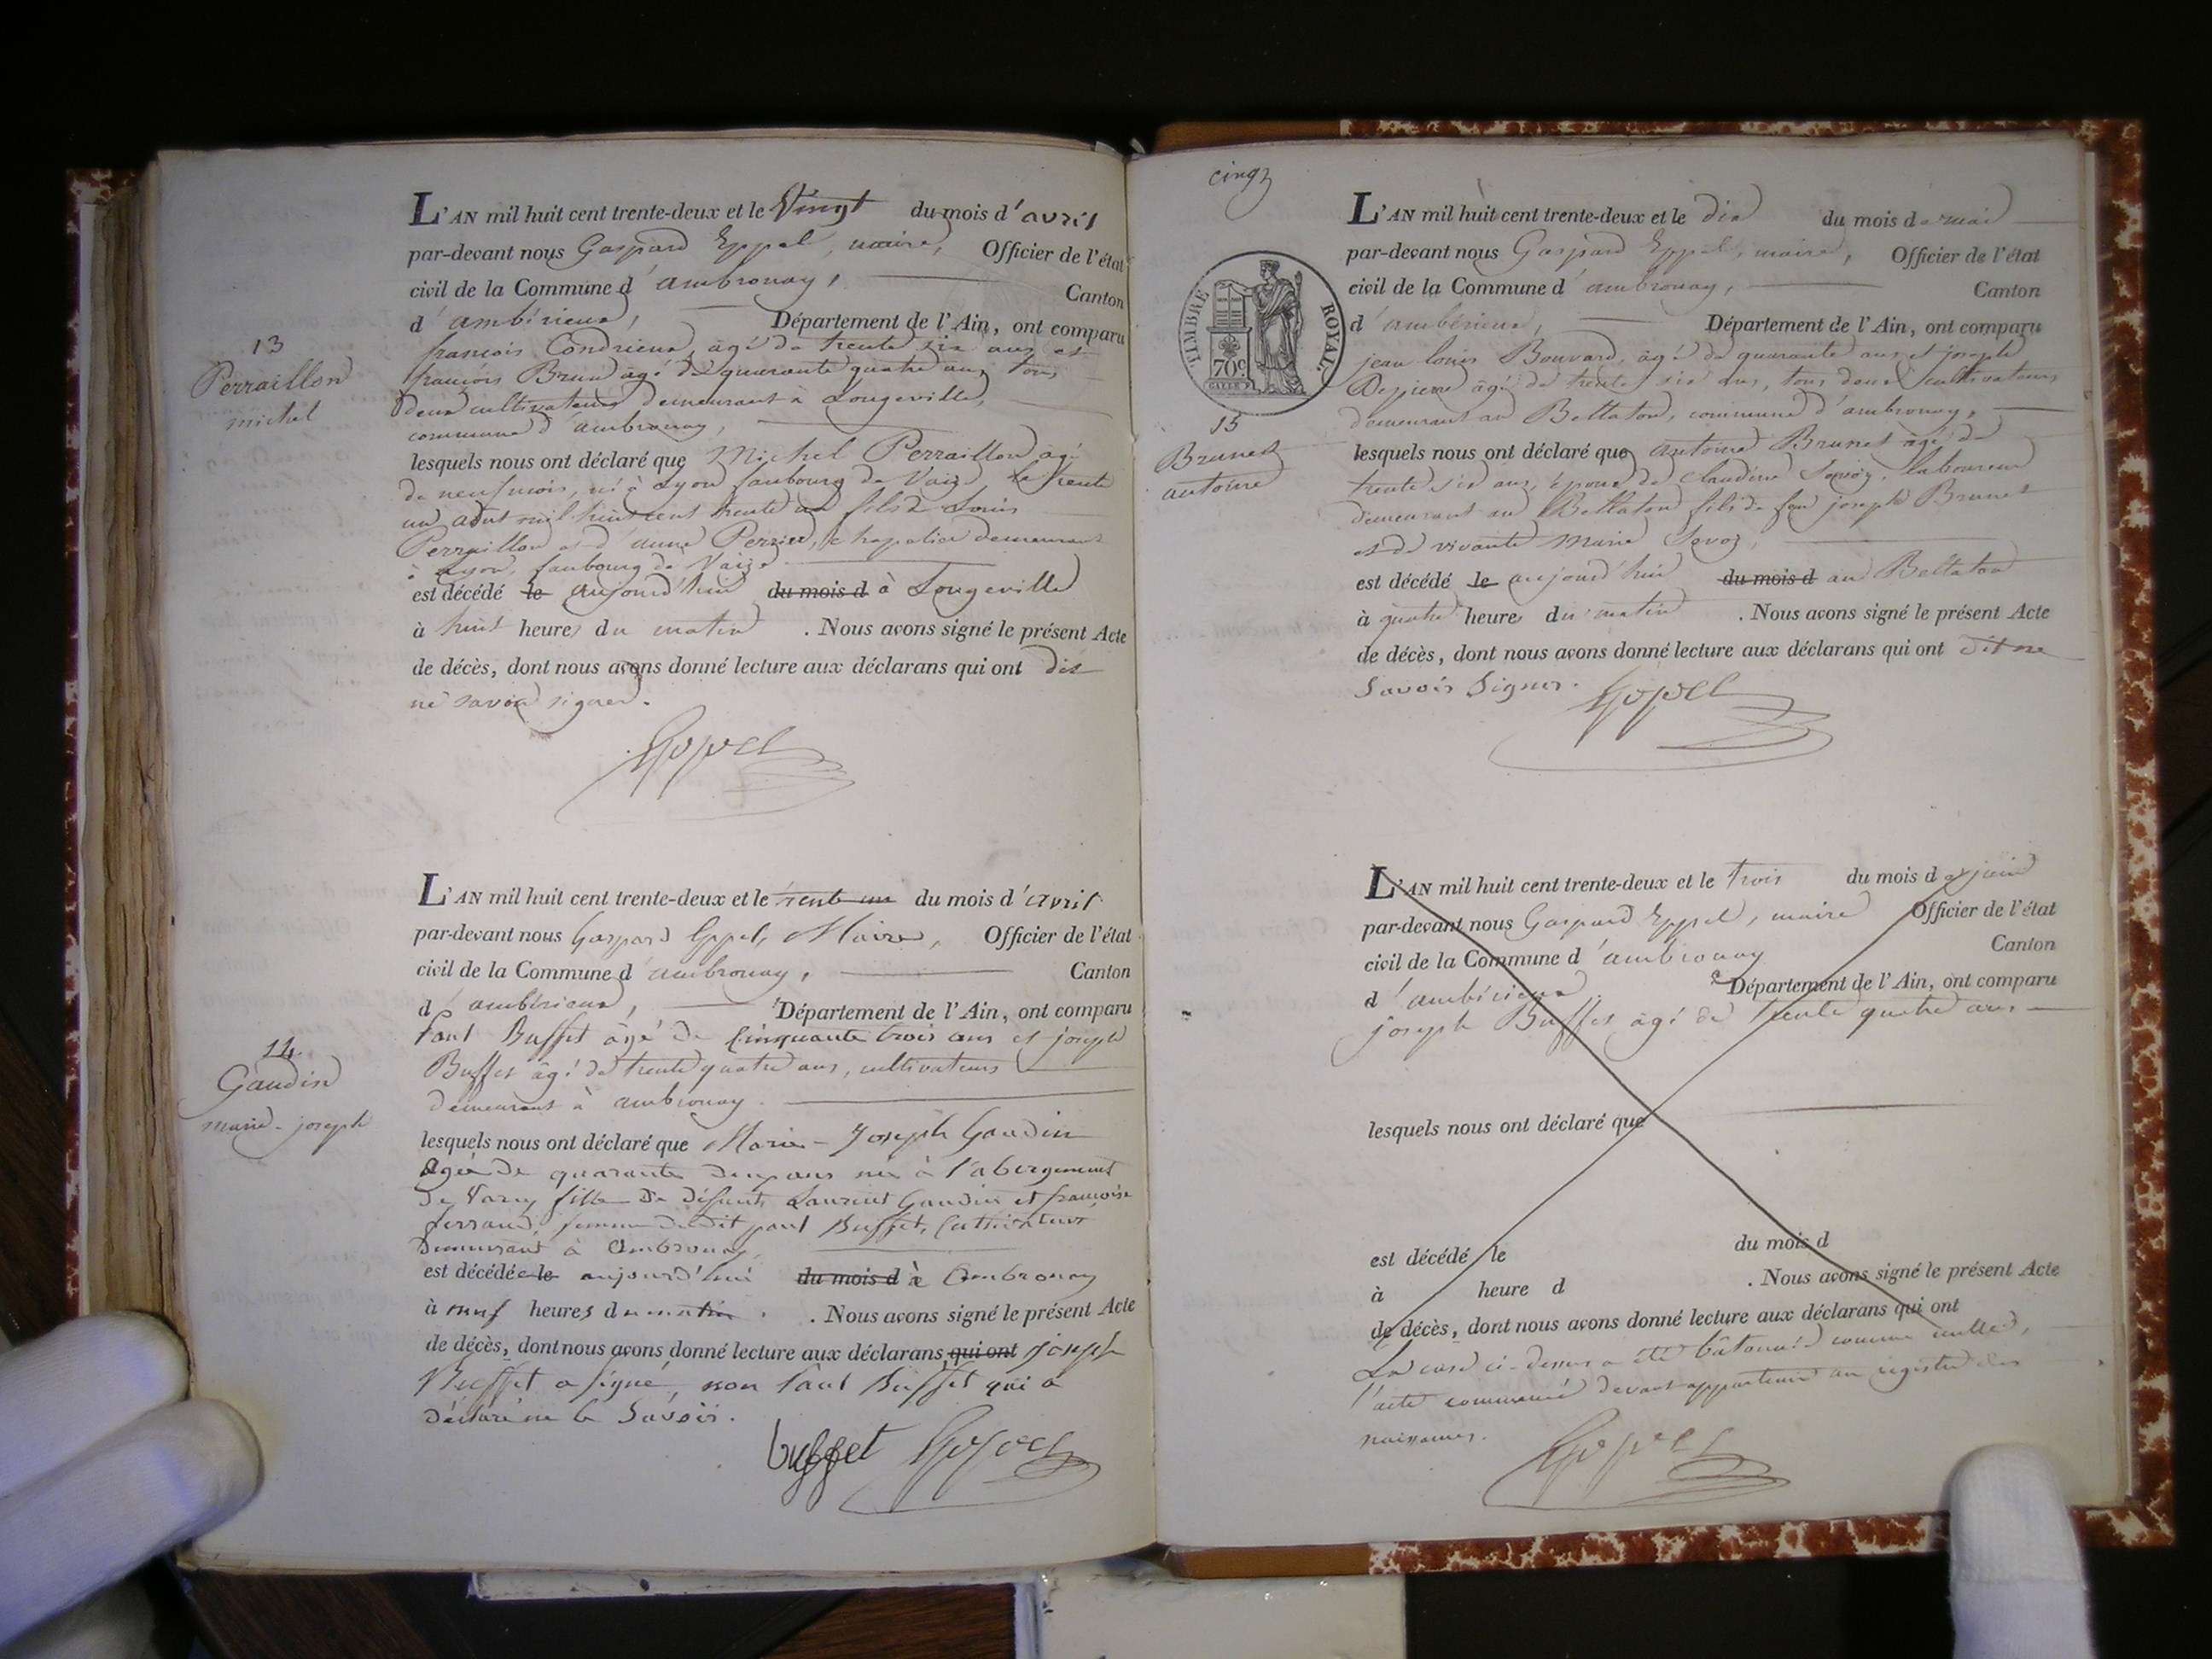 L'AN mil huit cent trente-deux et le Vingt du mois d'avril
par-devant nous Gaspard Eppel, maire, Officier de l'état
civil de la Commune d'ambronay, Canton
d'ambérieux, Département de l'Ain, ont comparu
françois Condrieux, âgé de trente six ans et
françois Brun âgé de quarante quatre ans tous
deux cultivateurs demeurant à Longeville,
commune d'ambronay,
13
Perraillon
michel
lesquels nous ont déclaré que Michel Perraillon âgé
de neuf mois, né à Lyon faubourg de Vaize le trente
un août mil huit cent trente un fils de Louis
Perraillon et d'anne Perrier, chapelier demeurant
à Lyon, faubourg de Vaize.
est décédé le aujourd'hui du mois d à Longeville
à huit heures du matin . Nous avons signé le présent Acte
de décès, dont nous avons donné lecture aux déclarans qui ont dit
ne savoir signer.
Eppel
L'AN mil huit cent trente-deux et le trente un du mois d'avril
par-devant nous Gaspard Eppel, Maire, Officier de l'état
civil de la Commune d'ambronay, Canton
d'ambérieux, Département de l'Ain, ont comparu
Paul Buffet âgé de Cinquante trois ans et joseph
Buffet âgé de trente quatre ans, cultivateurs
demeurant à ambronay.
14
Gaudin
marie-joseph
lesquels nous ont déclaré que Marie-Joseph Gaudin
agée de quarante deux ans née à l'abergement
de Varey fille de défunts Laurent Gaudin et françoise
ferrand, femme dudit paul Buffet, Cultivateur
Demeurant à Ambronay,
est décédée le aujourd'hui du mois d à Ambronay
à neuf heures du matin . Nous avons signé le présent Acte
de décès, dont nous avons donné lecture aux déclarans qui ont joseph
Buffet a signé, non Paul Buffet qui a
déclaré ne le Savoir.
buffet Eppel
cinq
TIMBRE ROYAL
70c
15
Brunet
antoine
L'AN mil huit cent trente-deux et le dix du mois de mai
par-devant nous Gaspard Eppel, maire, Officier de l'état
civil de la Commune d'ambronay, Canton
d'ambérieux, Département de l'Ain, ont comparu
jean louis Bouvard, âgé de quarante ans et joseph
âgé de trente six ans, tous deux cultivateurs
demeurant au Bellaton, commune d'ambronay,
lesquels nous ont déclaré que antoine Brunet âgé de
trente six ans, époux de Claudine laboureur
demeurant au Bellaton fils de feu joseph Brunet
et de vivante Marie
est décédé le aujourd'hui du mois d au Bellaton
à quatre heures du matin . Nous avons signé le présent Acte
de décès, dont nous avons donné lecture aux déclarans qui ont dit ne
Savoir Signer.
Eppel
L'AN mil huit cent trente-deux et le trois du mois de juin
par-devant nous Gaspard Eppel, maire Officier de l'état
civil de la Commune d'ambronay Canton
d'ambérieux Département de l'Ain, ont comparu
joseph Buffet âgé de trente quatre ans
lesquels nous ont déclaré que
est décédé le du mois d
à heure d . Nous avons signé le présent Acte
de décès, dont nous avons donné lecture aux déclarans qui ont
La case ci-dessus a été bâtonnée comme nulle,
l'acte commencé devant appartenir au registre des
naissances.
Eppel